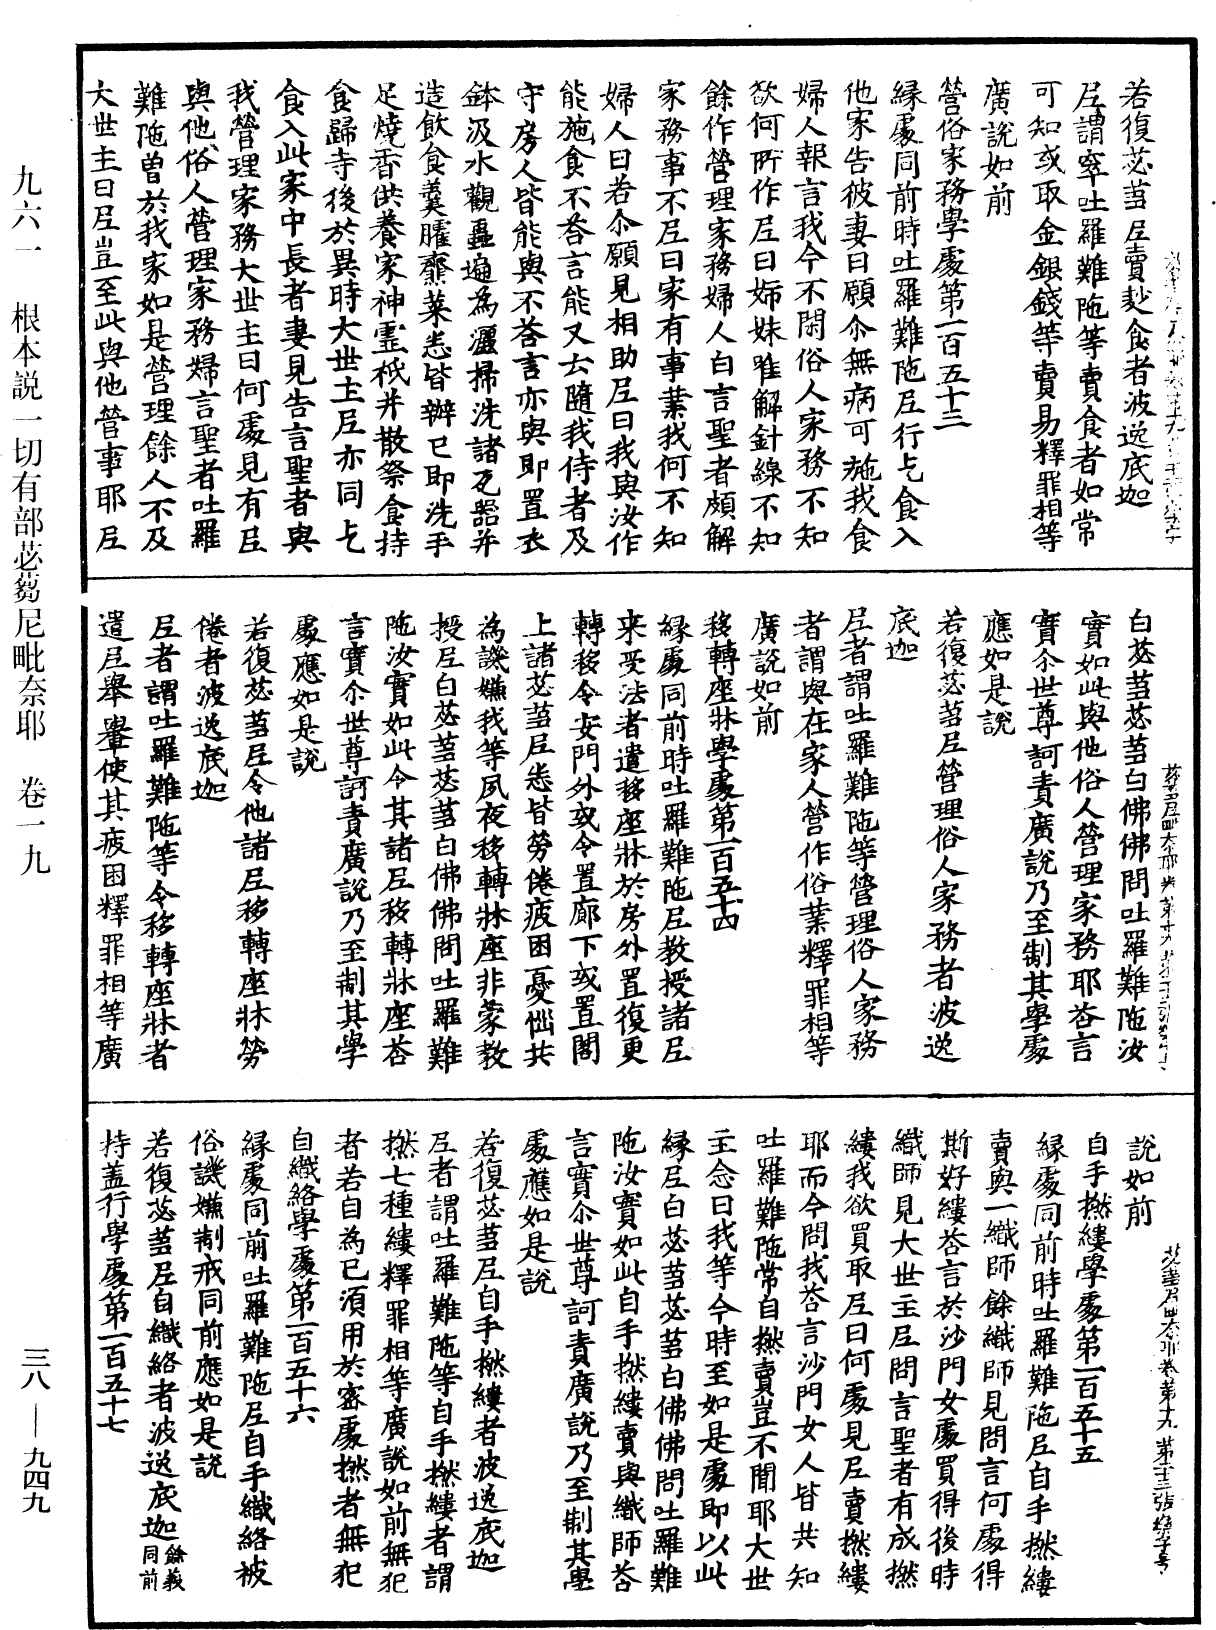 若復苾芻尼賣麨食者波逸底迦
尼謂窣吐羅難陁等賣食者如常
可知或取金銀錢等賣易釋罪相等
廣說如前
營俗家務學處第一百五十三
緣處同前時吐羅難陁尼行乞食入
他家告彼妻曰願尒無病可施我食
婦人報言我今不閑俗人家務不知
欲何所作尼曰姉妹唯解針線不知
餘作營理家務婦人白言聖者頗解
家務事不尼曰家有事業我何不知
婦人曰若尒願見相助尼曰我與汝作
能施食不荅言能又去隨我侍者及
守房人皆能與不荅言亦與即置衣
鉢汲水觀蟲遍為灑掃洗諸瓦器并
造飲食羹臛虀菜悉皆辦已即洗手
足燒香供養家神靈祇并散祭食持
食歸寺後於異時大世主尼亦同乞
食入此家中長者妻見告言聖者與
我營理家務大世主曰何處見有尼
與他俗人營理家務婦言聖者吐羅
難陁曾於我家如是營理餘人不及
大世主曰尼豈至此與他營事耶尼
白苾芻苾芻白佛佛問吐羅難陁汝
實如此與他俗人營理家務耶荅言
實尒世尊訶責廣說乃至制其學處
應如是說
若復苾芻尼營理俗人家務者波逸
底迦
尼者謂吐羅難陁等營理俗人家務
者謂與在家人營作俗業釋罪相等
廣說如前
移轉座牀學處第一百五十四
緣處同前時吐羅難陁尼教授諸尼
来受法者遣移座牀於房外置復更
轉移令安門外或令置廊下或置閣
上諸苾芻尼悉皆勞倦疲困憂惱共
為譏嫌我等夙夜移轉牀座非蒙教
授尼白苾芻苾芻白佛佛問吐羅難
陁汝實如此令其諸尼移轉牀座荅
言實尒世尊訶責廣說乃至制其學
處應如是說
若復苾芻尼令他諸尼移轉座牀勞
倦者波逸底迦
尼者謂吐羅難陁等令移轉座牀者
遣尼舉轝使其疲困釋罪相等廣
說如前
自手撚縷學處第一百五十五
緣處同前時吐羅難陁尼自手撚縷
賣與一織師餘織師見問言何處得
斯好縷荅言於沙門女處買得後時
織師見大世主尼問言聖者有成撚
縷我欲買取尼曰何處見尼賣撚縷
耶而今問我荅言沙門女人皆共知
吐羅難陁常自撚賣豈不聞耶大世
主念曰我等今時至如是處即以此
緣尼白苾芻苾芻白佛佛問吐羅難
陁汝實如此自手撚縷賣與織師荅
言實尒世尊訶責廣說乃至制其學
處應如是說
若復苾芻尼自手撚縷者波逸底迦
尼者謂吐羅難陁等自手撚縷者謂
撚七種縷釋罪相等廣說如前無犯
者若自為己須用於密處撚者無犯
自織絡學處第一百五十六
緣處同前吐羅難陁尼自手織絡被
俗譏嫌制戒同前應如是說
若復苾芻尼自織絡者波逸底迦餘義同前
持蓋行學處第一百五十七
九六一　根本說一切有部苾芻尼毗奈耶　卷一九
三八—九四九